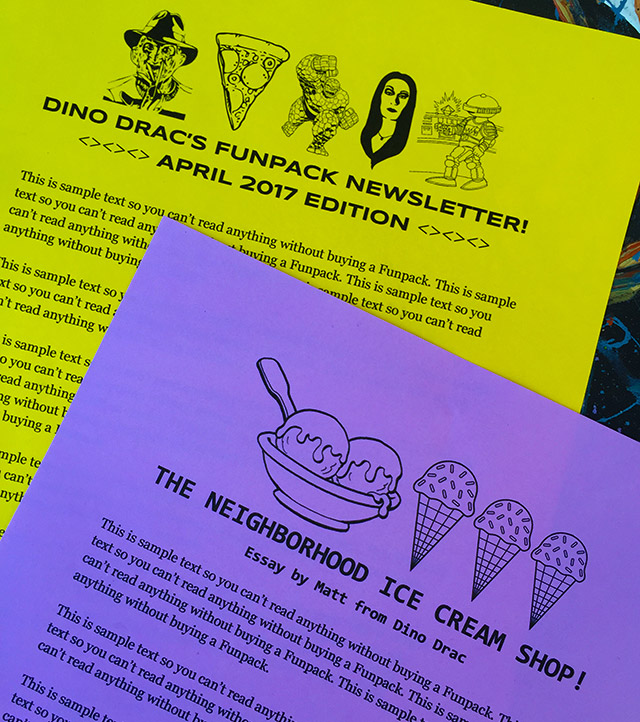 DINO DRAC'S FUNPACK NEWSLETTER!
<><><> APRIL 2017 EDITION <><><>
This is sample text so you can't read anything without buying a Funpack. This is sample
text so you can't read buying a Funpack. This is sample text so you
can't read anything sample text so you can't read
anything without buying
This is sample text so
text so you can't read
can't read anything
is sample text
so you can't
read anything
without
buying a
THE NEIGHBORHOOD ICE CREAM SHOP!
Essay by Matt from Dino Drac
This is sample text so you can't read anything without buying a Funpack. This is sample
text so you can't read anything without buying a Funpack. This is sample text so you
can't read anything without buying a Funpack. This is sample
anything without buying a Funpack.
This is sample text so you can't read anything
text so you can't read anything without
can't read anything without
This is sample text
text so you
can't